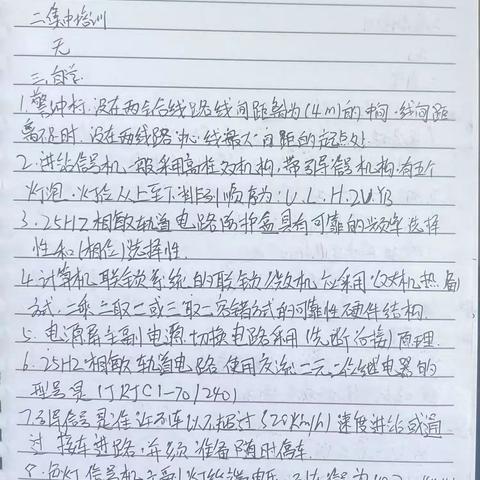 二集中培训
无
三、自学
1.警冲标:设在两会合线路线间距离为(4m)的中间.线间距
离不足时.设在两线路中心线最大间距的起点处.
2.进站信号机一般采用高柱双机构,带引导信号机构.有五个
灯泡.灯位从上至下排列顺序为:U.L.H.2U.YB
3.25HZ相敏轨道电路防护盒具有可靠的频率选择
性和(相位)选择性.
4.计算机联锁系统的联锁微机应采用(双机热备)
方式.二乘二取二或三取二容错方式的可靠性硬件结构.
5.电源屏主副电源切换电路采用(先断后接)原理.
6.25HZ相敏轨道电路使用交流二元二位继电器的
型号是(JRJC1-70/240)
7.引导信号是准许列车以不超过(20Km/h)速度进站或通
过接车进路.并须准备随时停车.
8.色灯信号机主副灯丝端电压